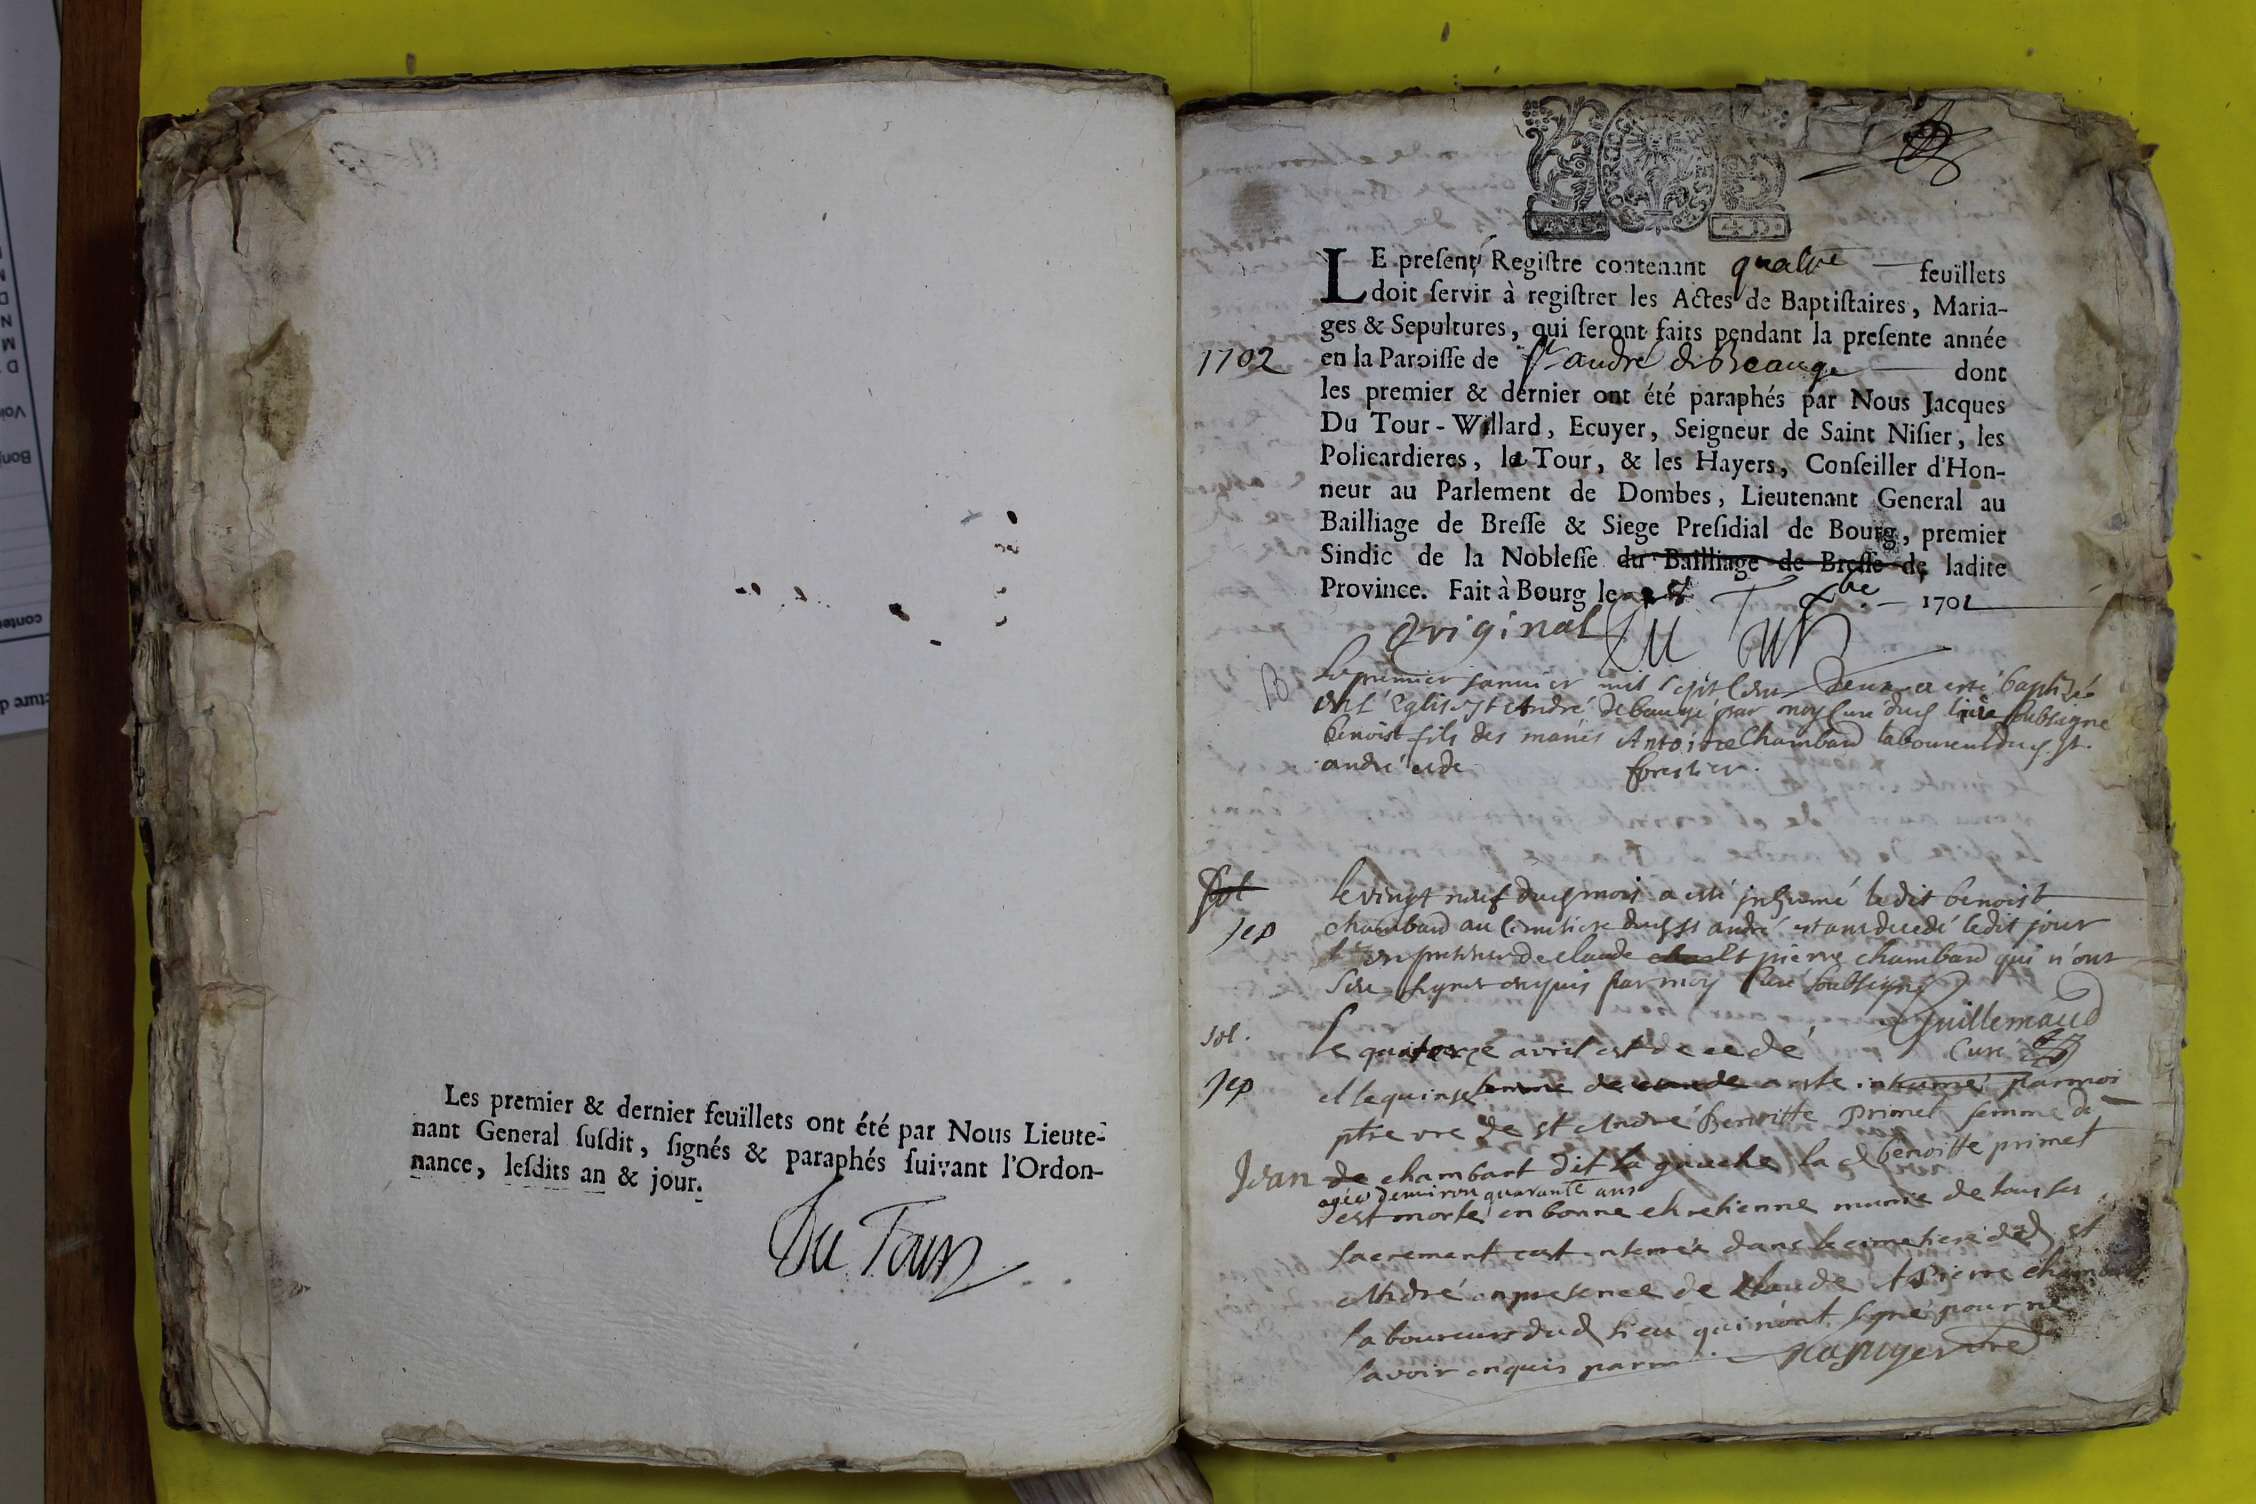 Les premier & dernier feuïllets ont été par Nous Lieute-
nant General ſuſdit, ſignés & paraphés ſuivant l'Ordon-
nance, leſdits an & jour.
Du Tour
LE preſent Regiſtre contenant quatre feuïllets
doit ſervir à regiſtrer les Actes de Baptiſtaires, Maria-
ges & Sepultures, qui ſeront faits pendant la preſente année
1702
en la Paroiſſe de St andré de Beauge dont
les premier & dernier ont été paraphés par Nous Jacques
Du Tour-Willard, Ecuyer, Seigneur de Saint Niſier, les
Policardieres, la Tour, & les Hayers, Conſeiller d'Hon-
neur au Parlement de Dombes, Lieutenant General au
Bailliage de Breſſe & Siege Preſidial de Bourg, premier
Sindic de la Nobleſſe du Bailliage de Breſſe de ladite
Province. Fait à Bourg le xbre 1701
Original Du Tour
B
Le premier janvier mil sept cens deux a esté baptizé
en l'Eglise St André de baugé par moy Curé dud lieu soubsigné
benoist fils des mariés Antoine Chambard laboureur dud St
andré et de forestier
sol
sep
le vingt neuf dud mois a esté inhumé ledit benoist
chambard au Cimitiere dud St andré estant decedé ledit jour
en presence de claude et pierre chambard qui n'ont
sceu signer enquis par moy Curé soubsigné
Guillemaud
Curé
sol.
Le quatorze avril est decedé
sep
et le quinse femme de claude a este inhumé par moi
ptre vre de st André Benoitte primet femme de
Jean de chambart dit la gauche la d benoitte primet
agée denviron quarante ans
est morte en bonne chretienne munie de tous ses
sacrement est enterrée dans le cimetiere dud st
André en presence de Claude & Pierre chambart
laboureurs dud lieu qui n'ont signé pour ne
savoir enquis par moi vre